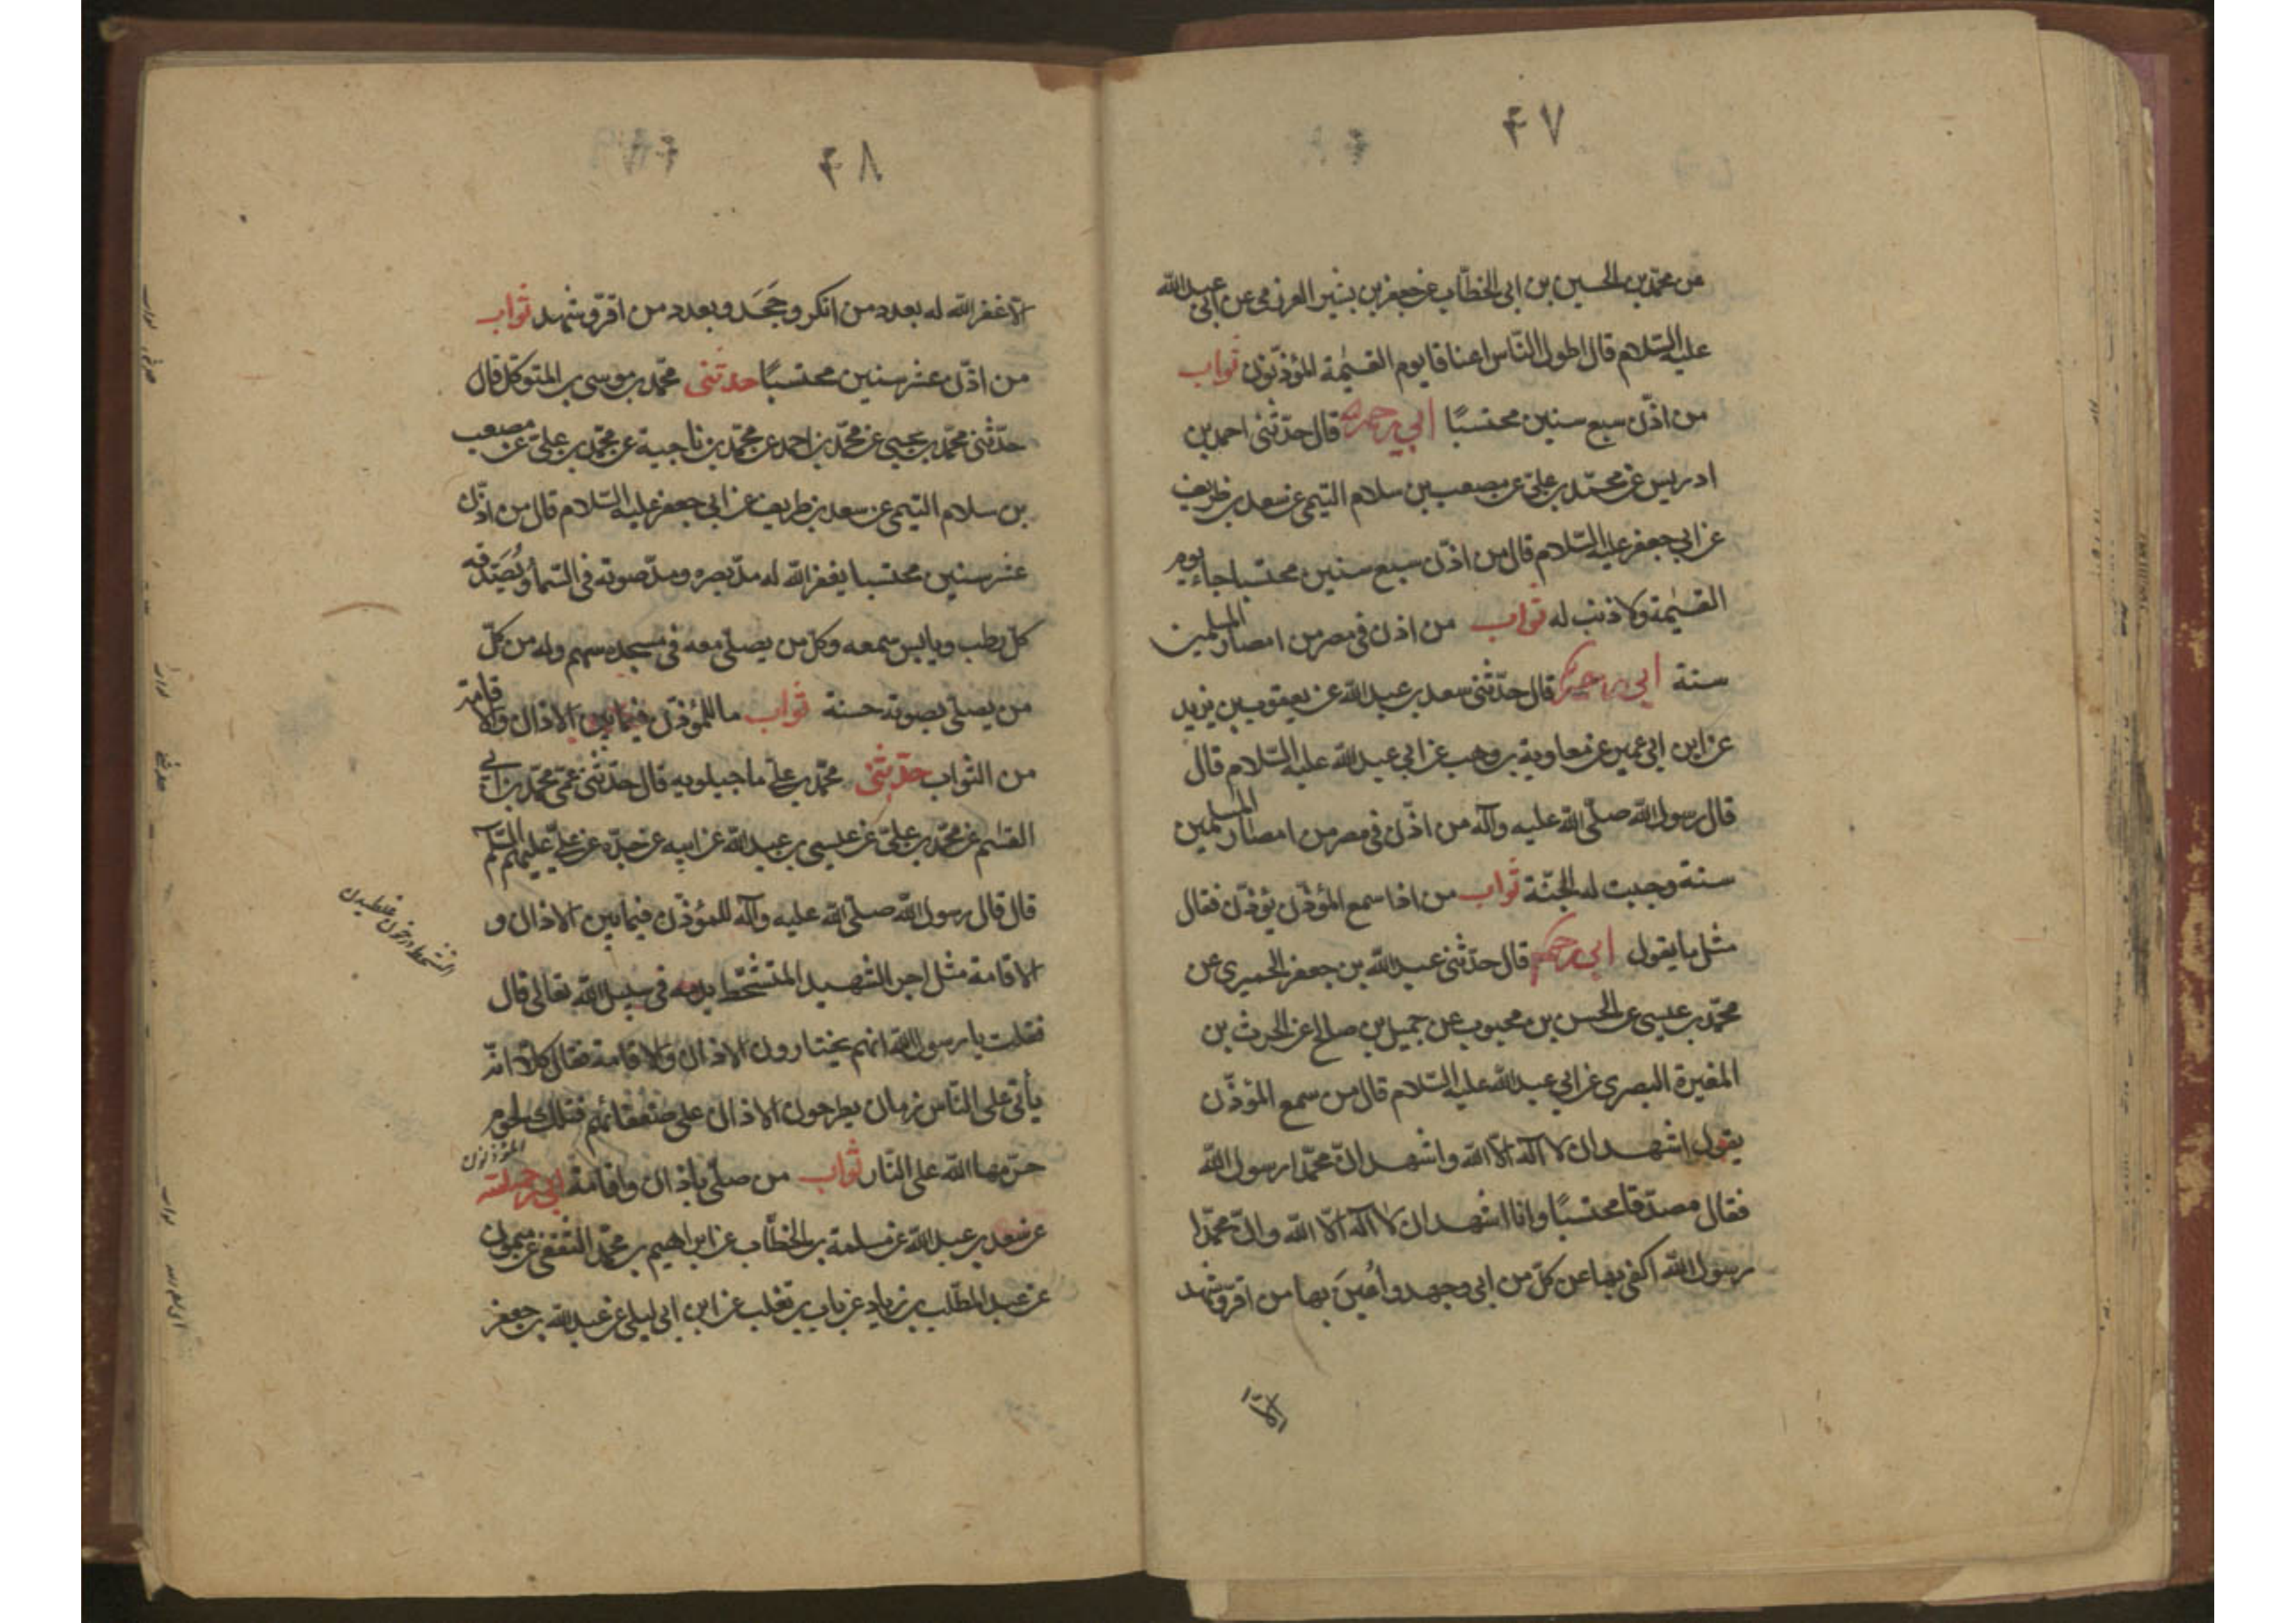 ۴۷
عن محمّد بن الحسين بن ابی الخطّاب عن جعفر بن بشير العرزمی عن ابی عبد الله
عليه السّلام قال اطول النّاس اعناقا يوم القيٰمة المؤذّنون ثواب
من اذّن سبع سنين محتسبًا ابی ره قال حدّثنی احمد بن
ادريس عن محمّد بن علیّ عن مصعب بن سلام التيمی عن سعد بن طريف
عن ابی جعفر عليه السّلام قال من اذّن سبع سنين محتسبا جاء يوم
القيٰمة ولا ذنب له ثواب من اذن فی مصر من امصار المسلمين
سنة ابی ره قال حدّثنی سعد بن عبد الله عن يعقوب بن يزيد
عن ابن ابی عمير عن معاوية بن وهب عن ابی عبد الله عليه السّلام قال
قال رسول الله صلّی الله عليه وآله من اذّن فی مصر من امصار المسلمين
سنة وجبت له الجنّة ثواب من اذا سمع المؤذّن يؤذّن فقال
مثل ما يقول ابی ره قال حدّثنی عبد الله بن جعفر الحميری عن
محمّد بن عيسی عن الحسن بن محبوب عن جميل بن صالح عن الحرث بن
المغيرة البصری عن ابی عبد الله عليه السّلام قال من سمع المؤذّن
يقول اشهد ان لا اله الّا الله واشهد انّ محمّدا رسول الله
فقال مصدّقا محتسبًا وانا اشهد ان لا اله الّا الله وانّ محمّدا
رسول الله اكفی بها عن كلّ من ابی وجهد واُعينَ بها من اقرّ وشهد
الّا
۴۸
الّا غفر الله له بعدد من انكر وجَحَد وبعدد من اقرّ وشهد ثواب
من اذّن عشر سنين محتسبًا حدثنی محمّد بن موسی بن المتوكّل قال
حدّثنی محمّد بن يحيی عن محمّد بن احمد عن محمّد بن ناجية عن محمّد بن علیّ عن مصعب
بن سلام التيمی عن سعد بن طريف عن ابی جعفر عليه السّلام قال من اذّن
عشر سنين محتسبا يغفر الله له مدّ بصره ومدّ صوته فی السّماء ويُصَدّقه
كلّ رطب ويابس سمعه وكلّ من يصلّی معه فی مسجده سهم وله من كلّ
من يصلّی بصوته حسنة ثواب ما للمؤذّن فيما بين الاذان والاقامة
من الثواب حدّثنی محمّد بن علی ماجيلويه قال حدّثنی عمّی محمّد بن ابی
القسٰم عن محمّد بن علیّ عن عيسی بن عبد الله عن ابيه عن جدّه عن علیّ عليهم السّلم
قال قال رسول الله صلّی الله عليه وآله للمؤذّن فيما بين الاذان و
الاقامة مثل اجر الشهيد المتشحّط بدمه فی سبيل الله تعالی قال
التشحط در خون غلطيدن
فقلت يا رسول الله انهم يختارون الاذان والاقامة فقال كلّا انّه
يأتی علی النّاس زمان يطرحون الاذان علی ضعفائهم فتلك لحوم
حرّمها الله علی النّار ثواب من صلّی باذان واقامة ابی رحمه الله
المؤذنون
عن سعد بن عبد الله عن سلمة بن الخطّاب عن ابراهيم بن محمّد الثقفی عن ميمون
عن عبد المطّلب بن زياد عن بان بن تغلب عن ابن ابی ليلی عن عبد الله بن جعفر